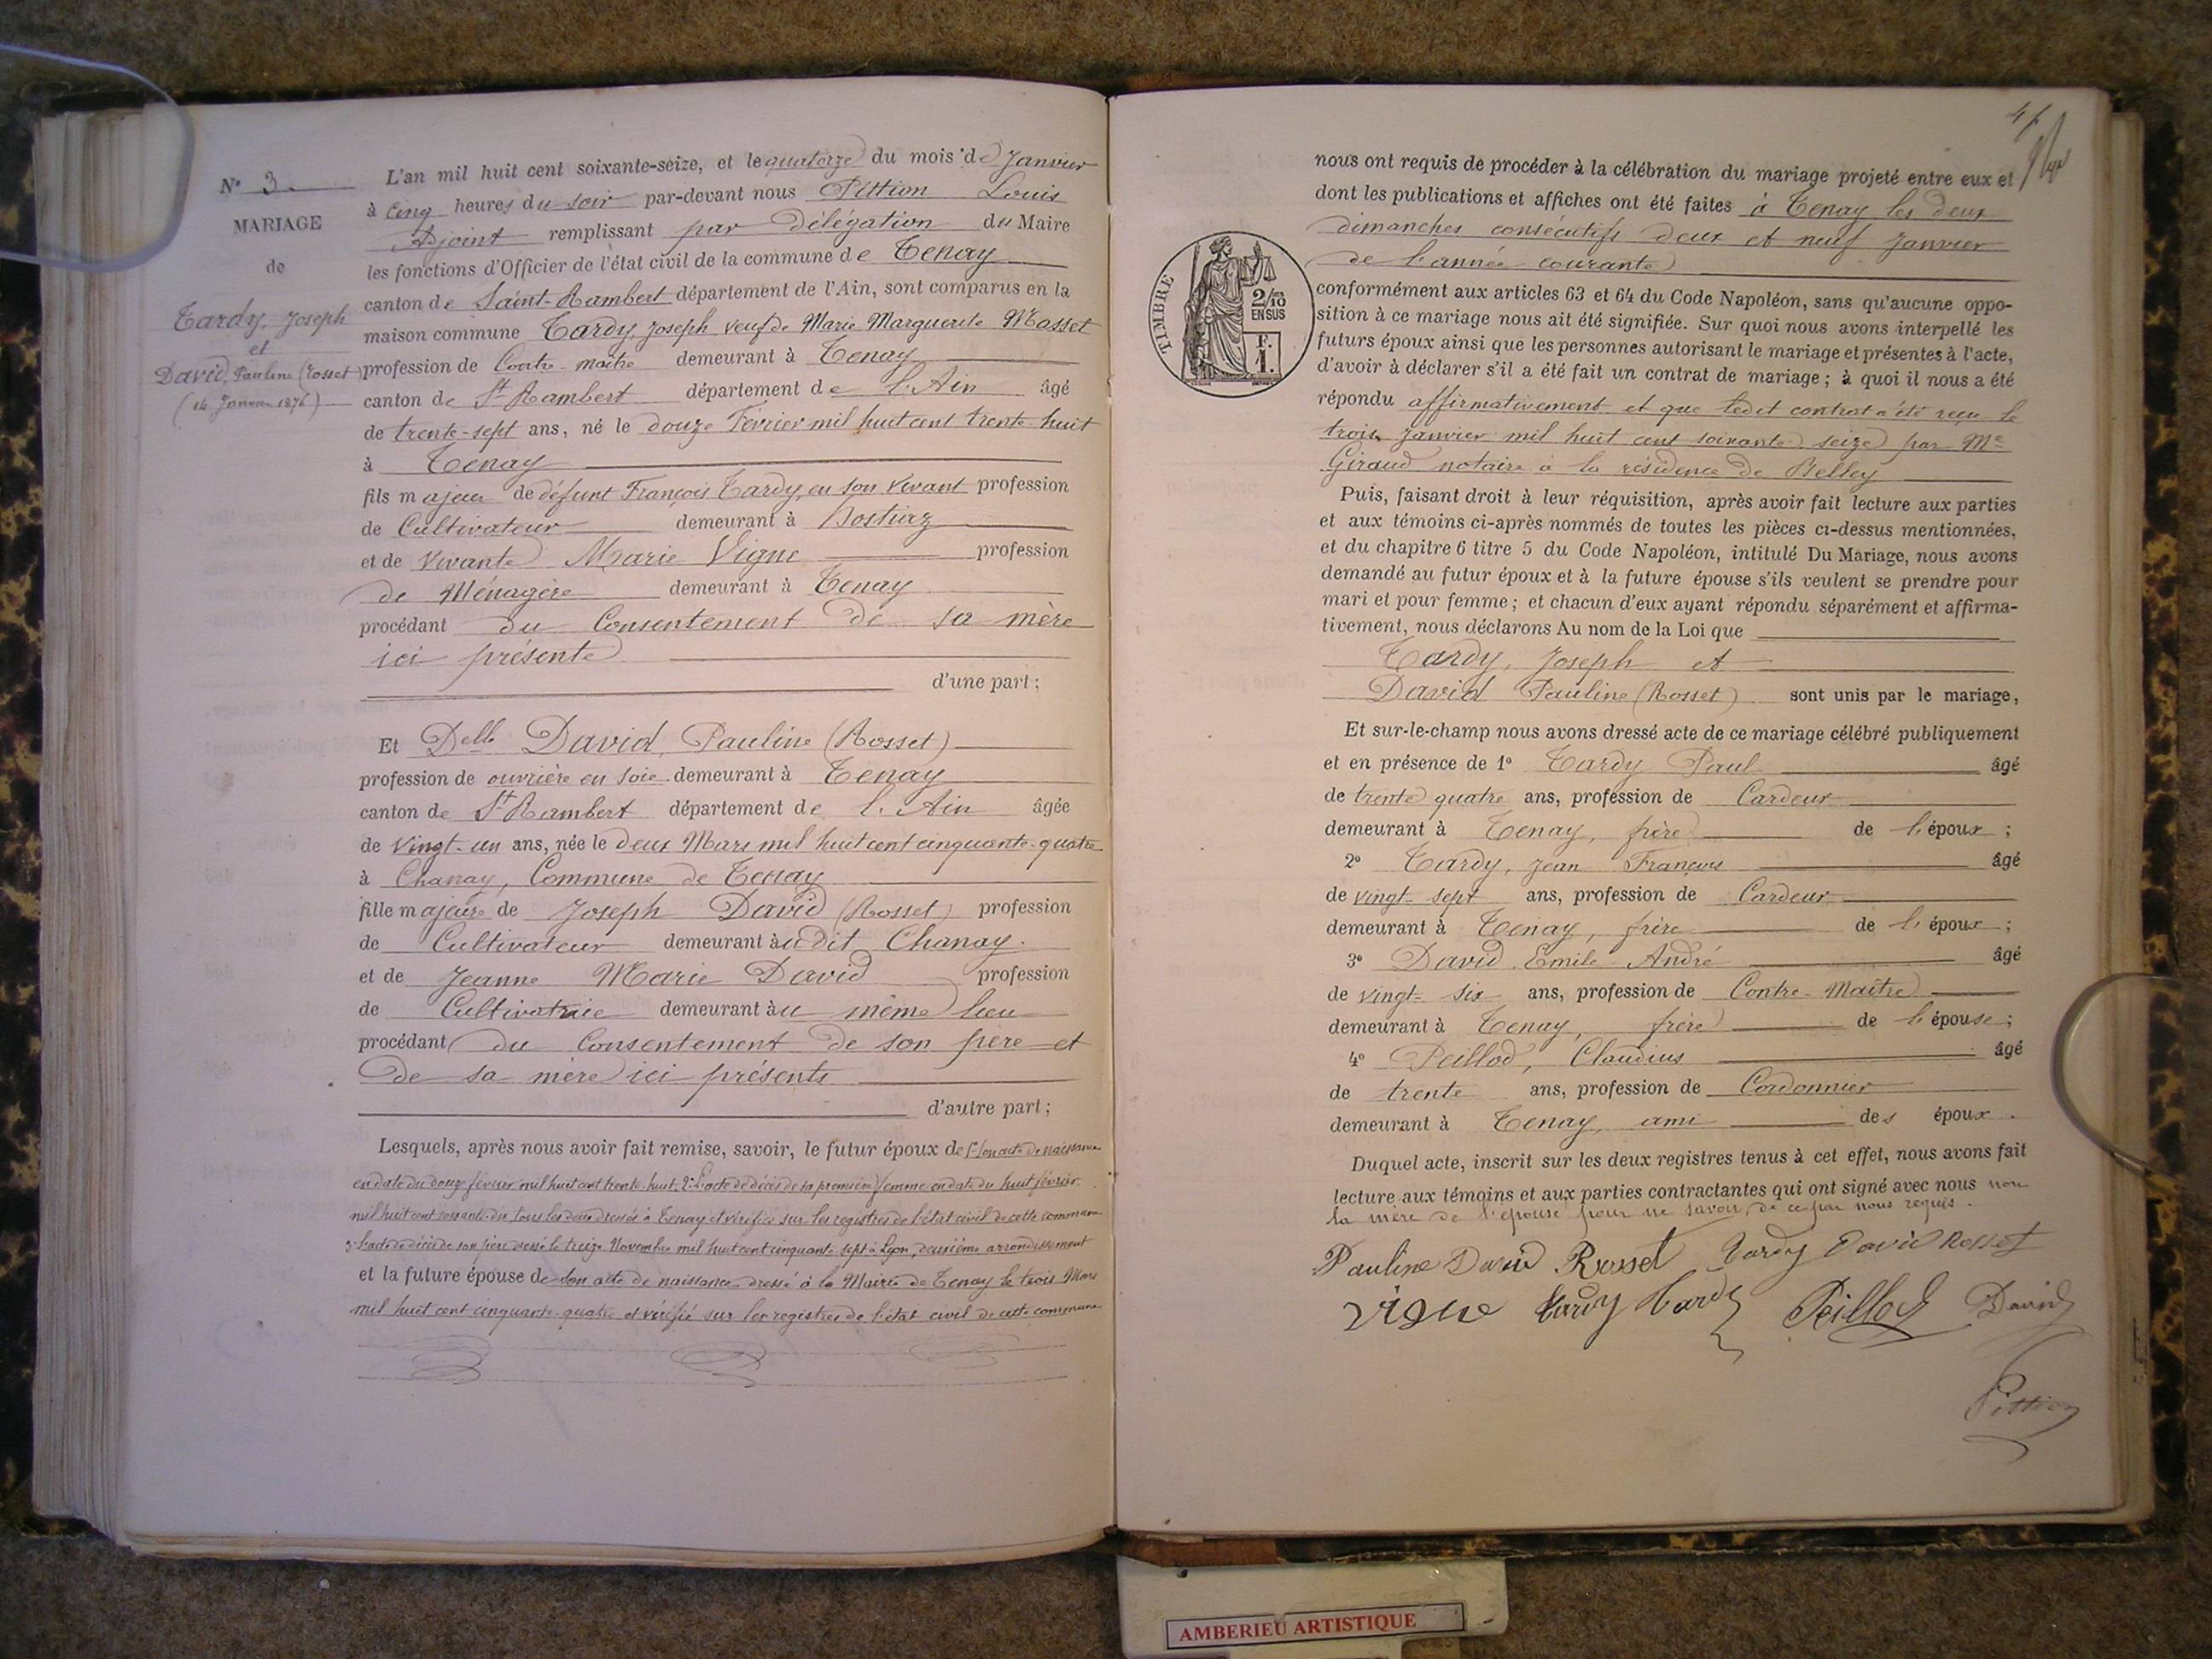 N° 3
MARIAGE
de
Tardy, Joseph
et
David, Pauline (Rosset)
(14 Janvier 1876)
L'an mil huit cent soixante-seize, et le quatorze du mois de Janvier
à cinq heures du soir par-devant nous Pittion Louis
Adjoint remplissant par délégation du Maire
les fonctions d'Officier de l'état civil de la commune de Tenay
canton de Saint-Rambert département de l'Ain, sont comparus en la
maison commune Tardy, Joseph veuf de Marie Marguerite Masset
profession de Contre-maître demeurant à Tenay
canton de St Rambert département de l'Ain âgé
de trente-sept ans, né le douze Février mil huit cent trente-huit
à Tenay
fils majeur de défunt François Tardy, en son vivant profession
de Cultivateur demeurant à Hostiaz
et de vivante Marie Vigne profession
de Ménagère demeurant à Tenay
procédant du Consentement de sa mère
ici présente
d'une part;
Et Delle David, Pauline (Rosset)
profession de ouvrière en soie demeurant à Tenay
canton de St Rambert département de l'Ain âgée
de vingt-un ans, née le deux Mars mil huit cent cinquante-quatre
à Chanay, Commune de Tenay
fille majeure de Joseph David (Rosset) profession
de Cultivateur demeurant audit Chanay.
et de Jeanne Marie David profession
de Cultivatrice demeurant au même lieu
procédant du Consentement de son père et
de sa mère ici présents
d'autre part;
Lesquels, après nous avoir fait remise, savoir, le futur époux de 1° son acte de naissance
en date du douze février mil huit cent trente-huit. 2° L'acte de décès de sa première femme en date du huit février
mil huit cent soixante-dix tous les deux dressés à Tenay et vérifiés sur les registres de l'état civil de cette commune
3° l'acte de décès de son père dressé le treize Novembre mil huit cent cinquante-sept à Lyon, deuxième arrondissement
et la future épouse de son acte de naissance dressé à la Mairie de Tenay le trois Mars
mil huit cent cinquante-quatre et vérifié sur les registres de l'état civil de cette commune
41
nous ont requis de procéder à la célébration du mariage projeté entre eux et
dont les publications et affiches ont été faites à Tenay les deux
dimanches consécutifs deux et neuf Janvier
de l'année courante
TIMBRE
2/10 EN SUS
F. 1.
conformément aux articles 63 et 64 du Code Napoléon, sans qu'aucune oppo-
sition à ce mariage nous ait été signifiée. Sur quoi nous avons interpellé les
futurs époux ainsi que les personnes autorisant le mariage et présentes à l'acte,
d'avoir à déclarer s'il a été fait un contrat de mariage; à quoi il nous a été
répondu affirmativement et que ledit contrat a été reçu le
trois Janvier mil huit cent soixante seize par Me
Giraud notaire à la résidence de Belley
Puis, faisant droit à leur réquisition, après avoir fait lecture aux parties
et aux témoins ci-après nommés de toutes les pièces ci-dessus mentionnées,
et du chapitre 6 titre 5 du Code Napoléon, intitulé Du Mariage, nous avons
demandé au futur époux et à la future épouse s'ils veulent se prendre pour
mari et pour femme; et chacun d'eux ayant répondu séparément et affirma-
tivement, nous déclarons Au nom de la Loi que
Tardy, Joseph et
David Pauline (Rosset) sont unis par le mariage,
Et sur-le-champ nous avons dressé acte de ce mariage célébré publiquement
et en présence de 1° Tardy Paul âgé
de trente quatre ans, profession de Cardeur
demeurant à Tenay, frère de l'époux;
2° Tardy, Jean François âgé
de vingt-sept ans, profession de Cardeur
demeurant à Tenay, frère de l'époux;
3° David, Emile André âgé
de vingt-six ans, profession de Contre-Maître
demeurant à Tenay, frère de l'épouse;
4° Peillod, Claudius âgé
de trente ans, profession de Cordonnier
demeurant à Tenay, ami des époux.
Duquel acte, inscrit sur les deux registres tenus à cet effet, nous avons fait
lecture aux témoins et aux parties contractantes qui ont signé avec nous non
la mère de l'épouse pour ne savoir, de ce par nous requis.
Pauline David Rosset Tardy David Rosset
Vigne Tardy Tardy Peillod David
Pittion
AMBERIEU ARTISTIQUE